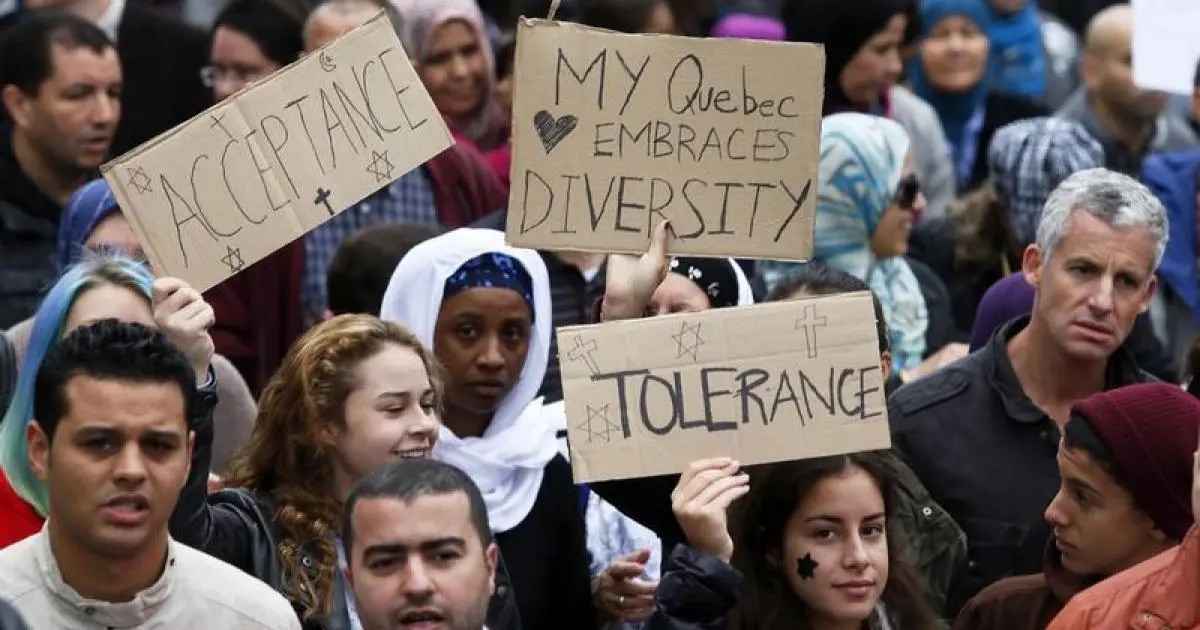 ACCEPTANCE
My Quebec
EMBRACES
DIVERSITY
TOLERANCE